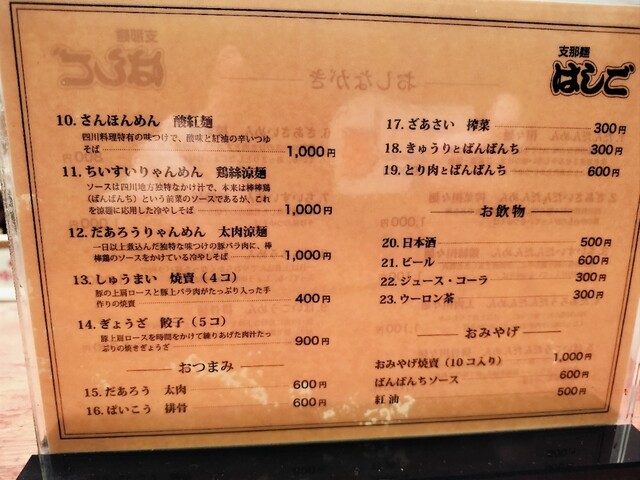 支那麺
はしご
10. さんほんめん 酸紅麺
四川料理特有の味つけで、酸味と紅油の辛いつゆ
そば 1,000円
11. ちいすいりゃんめん 鶏絲涼麺
ソースは四川地方独特なかけ汁で、本来は棒棒鶏
(ばんばんち)という前菜のソースであるが、これ
を涼麺に応用した冷やしそば 1,000円
12. だあろうりゃんめん 太肉涼麺
一日以上煮込んだ独特な味つけの豚バラ肉に、棒
棒鶏のソースをかけている冷やしそば 1,000円
13. しゅうまい 焼賣(4コ)
豚の上肩ロースと豚上バラ肉がたっぷり入った手
作りの焼賣 400円
14. ぎょうざ 餃子(5コ)
豚上肩ロースを時間をかけて練りあげた肉汁たっ
ぷりの焼きぎょうざ 900円
おつまみ
15. だあろう 太肉 600円
16. ぱいこう 排骨 600円
17. ざあさい 搾菜 300円
18. きゅうりとばんばんち 300円
19. とり肉とばんばんち 600円
お飲物
20. 日本酒 500円
21. ビール 600円
22. ジュース・コーラ 300円
23. ウーロン茶 300円
おみやげ
おみやげ焼賣(10コ入り) 1,000円
ばんばんちソース 600円
紅油 500円